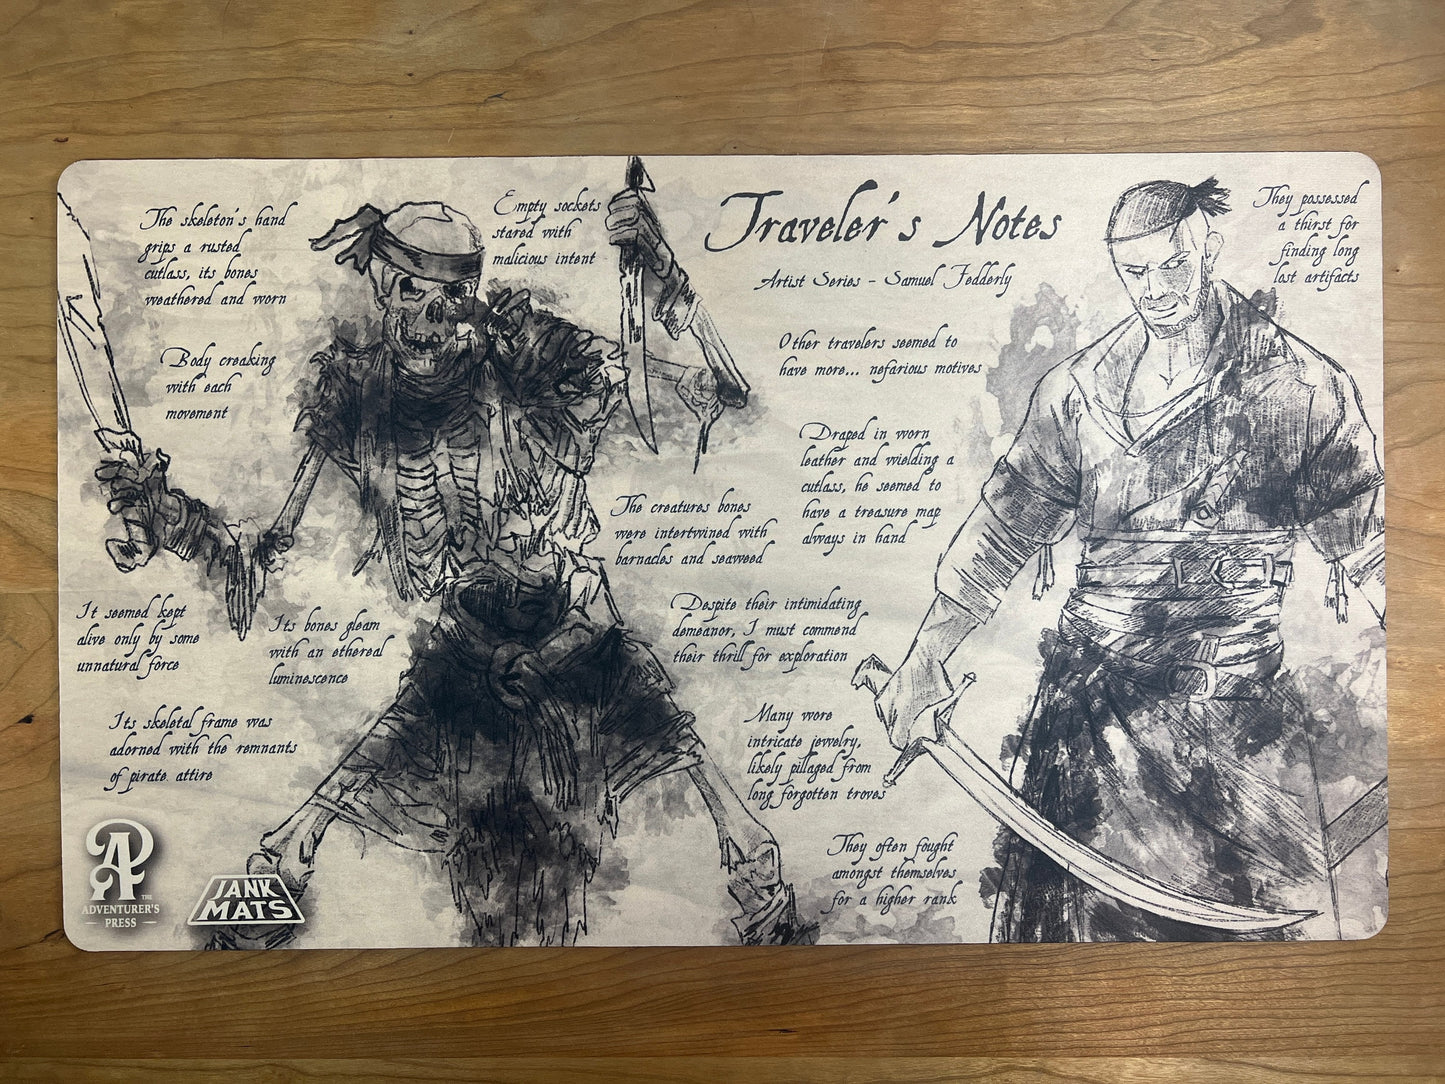 Traveler's Notes
Artist Series - Samuel Fedderly
The skeleton's hand
grips a rusted
cutlass, its bones
weathered and worn
Empty sockets
stared with
malicious intent
Body creaking
with each
movement
The creatures bones
were intertwined with
barnacles and seaweed
It seemed kept
alive only by some
unnatural force
Its bones gleam
with an ethereal
luminescence
Its skeletal frame was
adorned with the remnants
of pirate attire
They possessed
a thirst for
finding long
lost artifacts
Other travelers seemed to
have more... nefarious motives
Draped in worn
leather and wielding a
cutlass, he seemed to
have a treasure map
always in hand
Despite their intimidating
demeanor, I must commend
their thrill for exploration
Many wore
intricate jewelry,
likely pillaged from
long forgotten troves
They often fought
amongst themselves
for a higher rank
AP
THE
ADVENTURER'S
PRESS
JANK
MATS